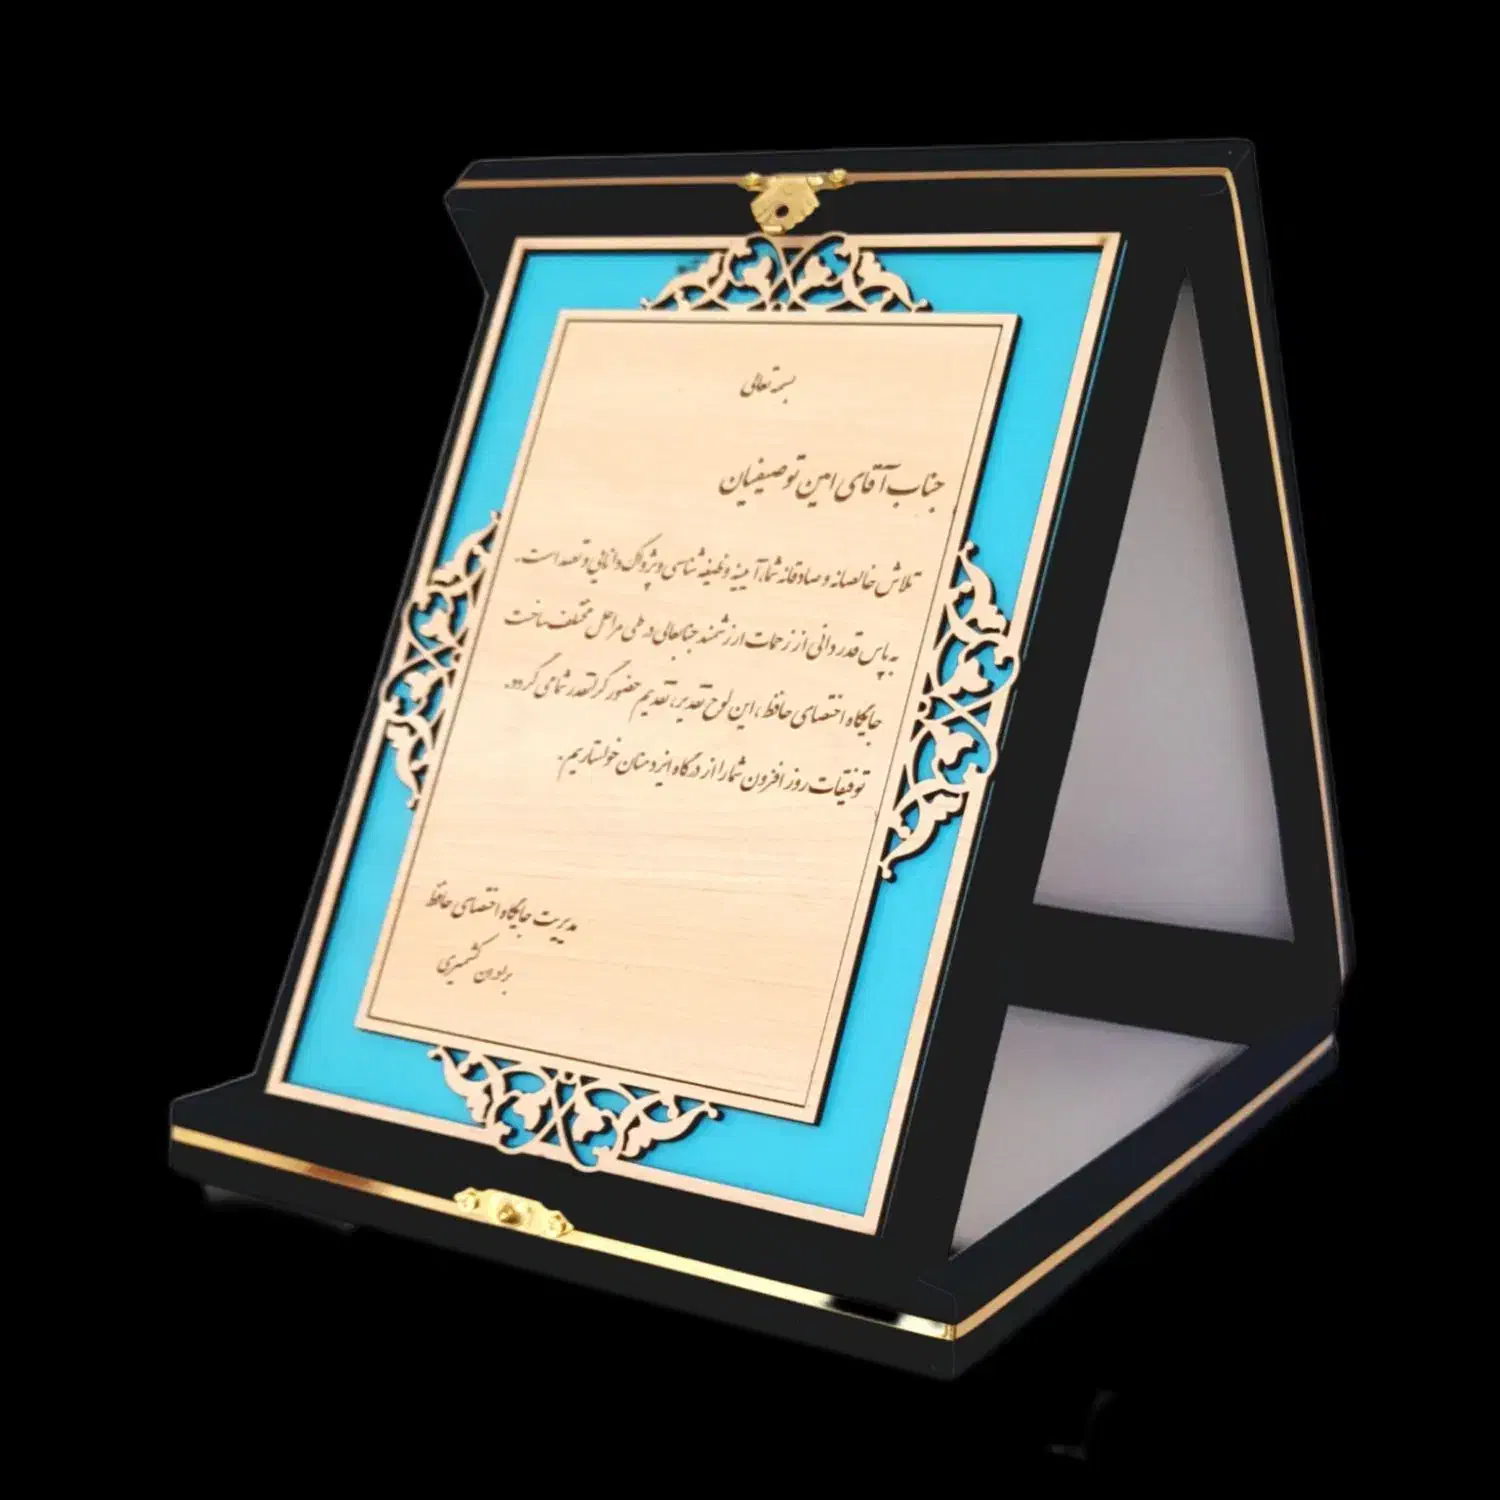 بسمه تعالی
جناب آقای امین توصیفیان
تلاش خالصانه و صادقانه شما، آیینه وظیفه شناسی و پژواک دانایی و تعهد است.
به پاس قدردانی از زحمات ارزشمند جنابعالی در طی مراحل مختلف ساخت
جایگاه اختصای حافظ، این لوح تقدیر، تقدیم حضور گرانقدر شما می گردد.
توفیقات روز افزون شما را از درگاه ایزد منان خواستاریم.
مدیریت جایگاه اختصای حافظ
برادران کشمیری